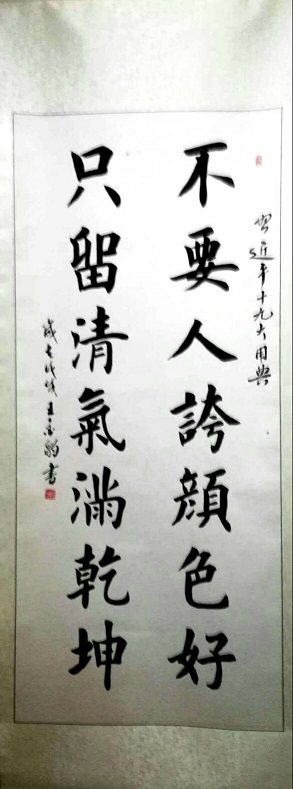 習近平十九大用典
不要人誇顔色好
只留清氣滿乾坤
歲在戊戌王 書